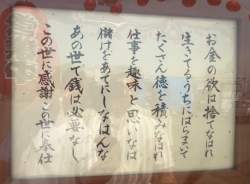 お金の欲は捨てなはれ
生きてるうちにはらまいて
たくさん徳を積みなはれ
仕事を趣味と思いなはれ
儲けをあてにしなはんな
あの世で銭は必要なし
この世に感謝この世に奉仕